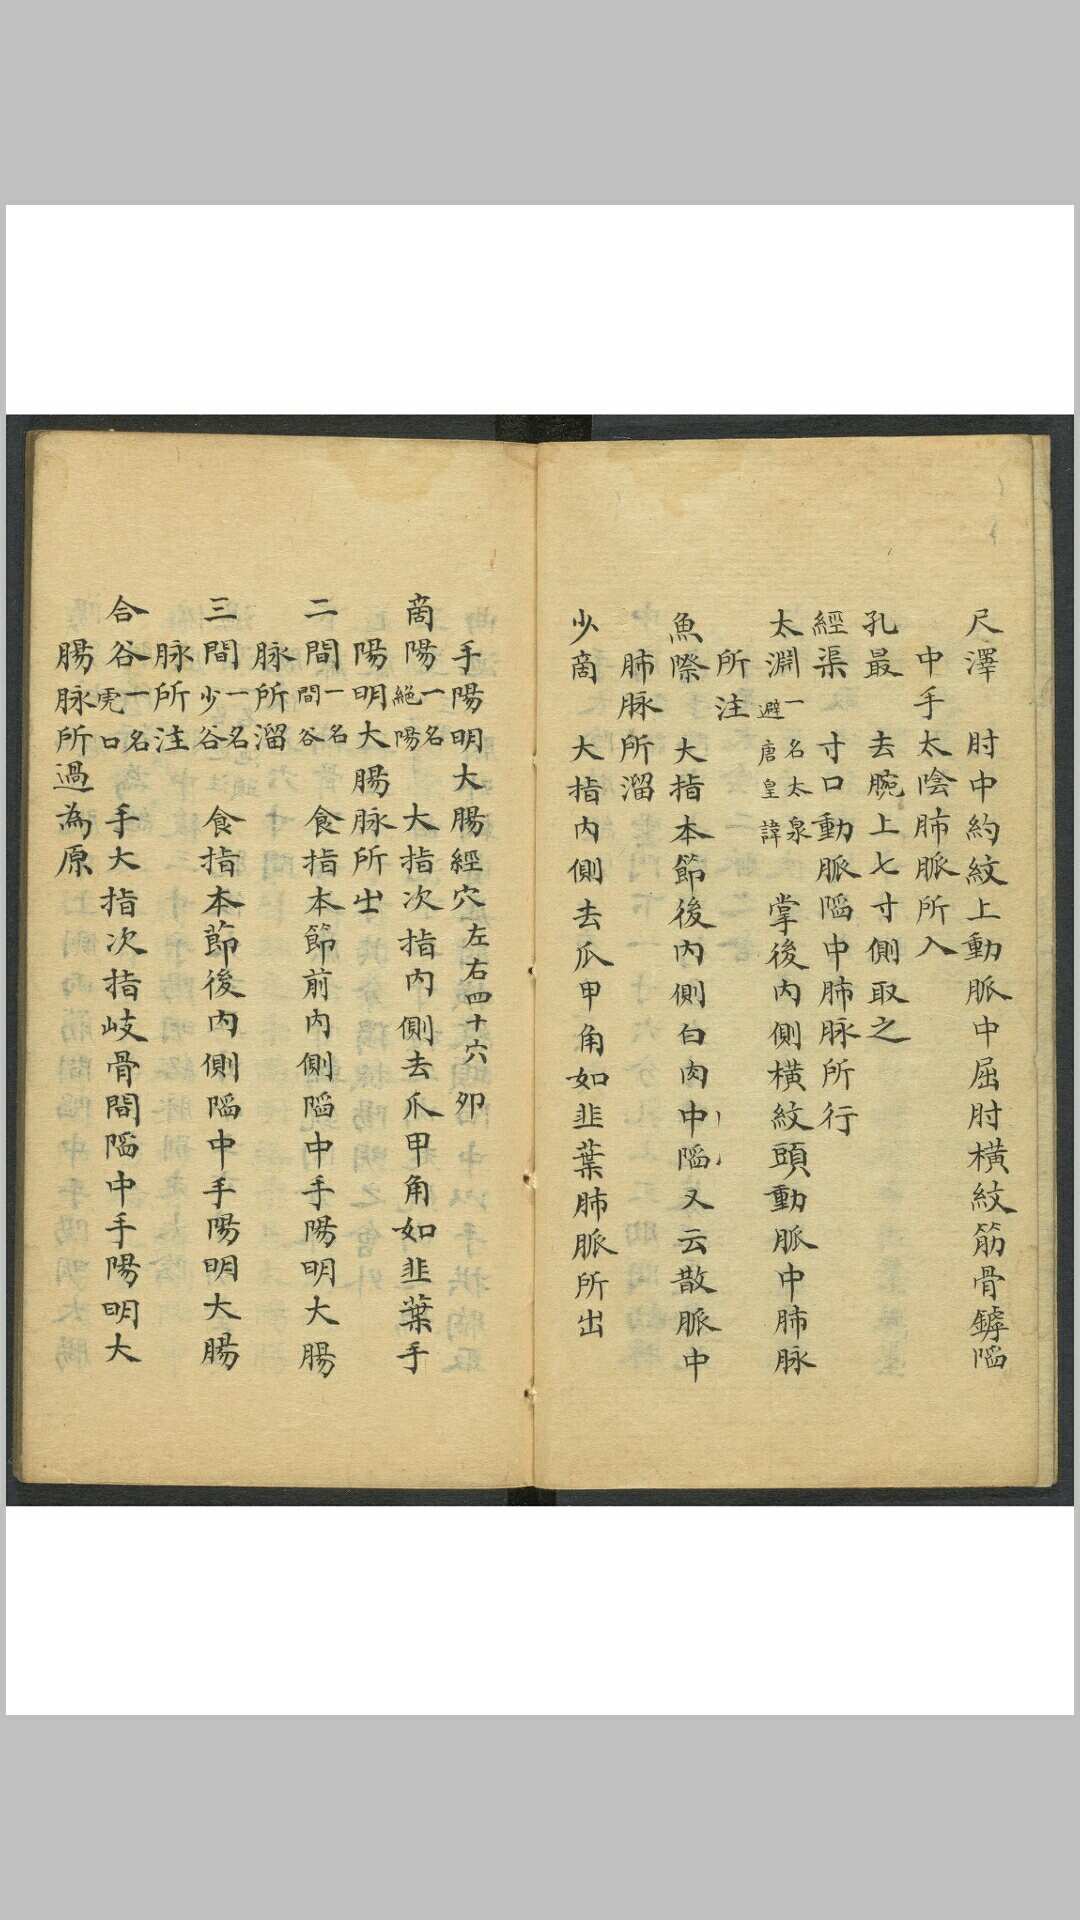 尺澤 肘中約紋上動脈中屈肘橫紋筋骨罅陷
中手太陰肺脈所入
孔最 去腕上七寸側取之
經渠 寸口動脈陷中肺脉所行
太淵 一名太泉避唐皇諱 掌後內側橫紋頭動脈中肺脉
所注
魚際 大指本節後內側白肉中陷又云散脈中
肺脉所溜
少商 大指內側去爪甲角如韭葉肺脈所出
手陽明大腸經穴 左右四十六 卯
商陽 一名絕陽 大指次指內側去爪甲角如韭葉手
陽明大腸脉所出
二間 一名間谷 食指本節前內側陷中手陽明大腸
脉所溜
三間 一名少谷 食指本節後內側陷中手陽明大腸
脉所注
合谷 一名虎口 手大指次指岐骨間陷中手陽明大
腸脉所過為原